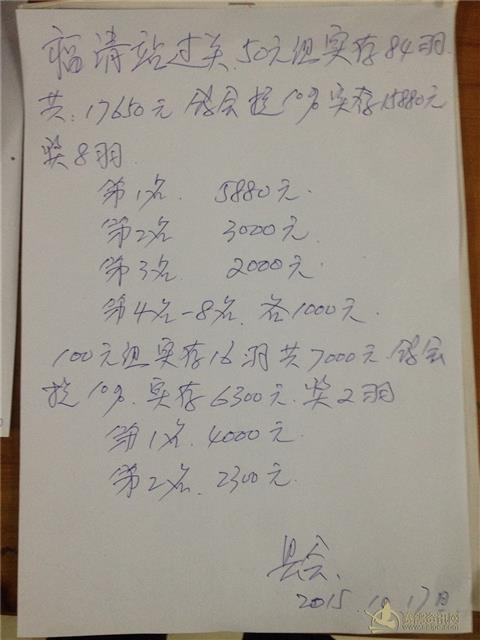 福清站过关.50元组实存84羽.
共:17650元 钱会提10%实存15880元
奖8羽.
第1名. 5880元.
第2名 3000元.
第3名. 2000元.
第4名-8名.各1000元.
100元组实存16羽共7000元.钱会
提10%.实存6300元.奖2羽
第1名.4000元.
第2名.2300元.
县会.
2015.10.17日